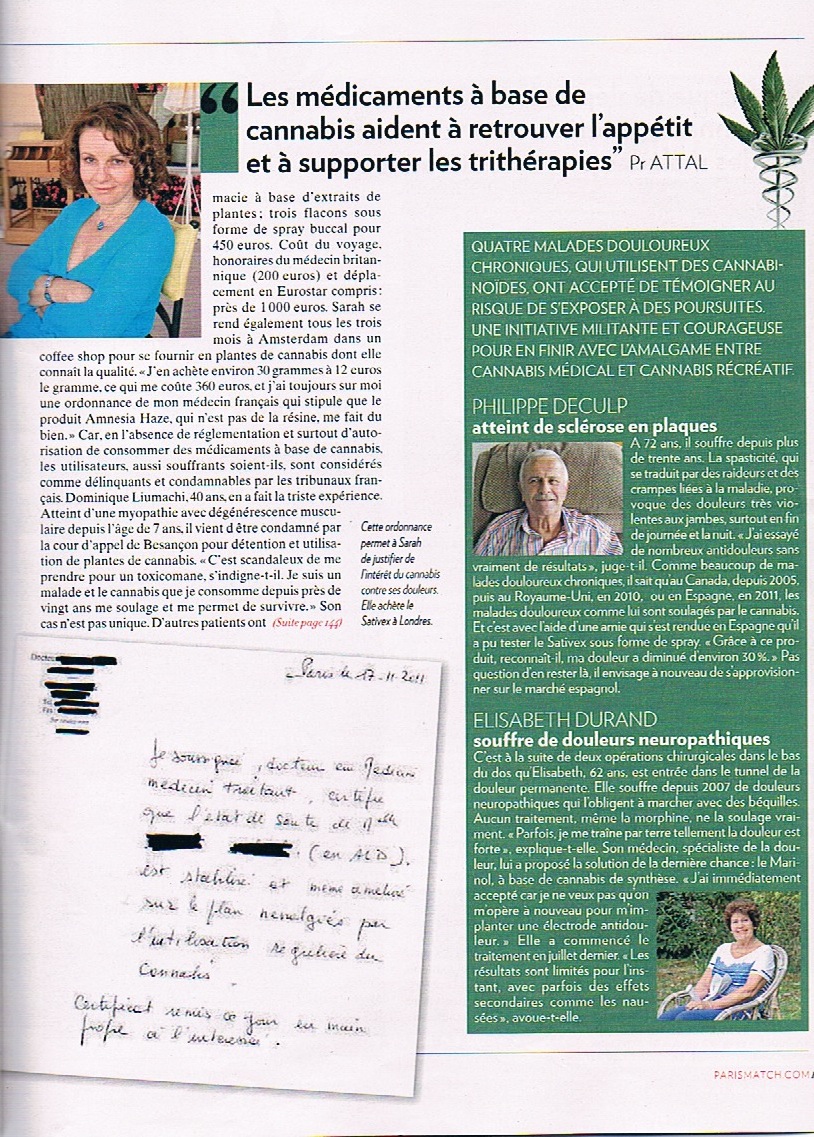 “Les médicaments à base de
cannabis aident à retrouver l’appétit
et à supporter les trithérapies” Pr ATTAL
macie à base d’extraits de
plantes ; trois flacons sous
forme de spray buccal pour
450 euros. Coût du voyage,
honoraires du médecin britan-
nique (200 euros) et dépla-
cement en Eurostar compris :
près de 1 000 euros. Sarah se
rend également tous les trois
mois à Amsterdam dans un
coffee shop pour se fournir en plantes de cannabis dont elle
connaît la qualité. « J’en achète environ 30 grammes à 12 euros
le gramme, ce qui me coûte 360 euros, et j’ai toujours sur moi
une ordonnance de mon médecin français qui stipule que le
produit Amnesia Haze, qui n’est pas de la résine, me fait du
bien. » Car, en l’absence de réglementation et surtout d’auto-
risation de consommer des médicaments à base de cannabis,
les utilisateurs, aussi souffrants soient-ils, sont considérés
comme délinquants et condamnables par les tribunaux fran-
çais. Dominique Liumachi, 40 ans, en a fait la triste expérience.
Atteint d’une myopathie avec dégénérescence muscu-
laire depuis l’âge de 7 ans, il vient d être condamné par
la cour d’appel de Besançon pour détention et utilisa-
tion de plantes de cannabis. « C’est scandaleux de me
prendre pour un toxicomane, s’indigne-t-il. Je suis un
malade et le cannabis que je consomme depuis près de
vingt ans me soulage et me permet de survivre. » Son
cas n’est pas unique. D’autres patients ont (Suite page 144)
Cette ordonnance
permet à Sarah
de justifier de
l’intérêt du cannabis
contre ses douleurs.
Elle achète le
Sativex à Londres.
Docteur
Paris le 17-11-2011
Je soussigné, docteur en Médecine
médecin traitant, certifie
que l’état de santé de Melle
(en ALD).
est stabilisé et même amélioré
sur le plan névralgies par
l’utilisation régulière du
Cannabis
Certificat remis ce jour en main
propre à l’intéressée.
QUATRE MALADES DOULOUREUX
CHRONIQUES, QUI UTILISENT DES CANNABI-
NOÏDES, ONT ACCEPTÉ DE TÉMOIGNER AU
RISQUE DE S’EXPOSER À DES POURSUITES.
UNE INITIATIVE MILITANTE ET COURAGEUSE
POUR EN FINIR AVEC L’AMALGAME ENTRE
CANNABIS MÉDICAL ET CANNABIS RÉCRÉATIF.
PHILIPPE DECULP
atteint de sclérose en plaques
A 72 ans, il souffre depuis plus
de trente ans. La spasticité, qui
se traduit par des raideurs et des
crampes liées à la maladie, pro-
voque des douleurs très vio-
lentes aux jambes, surtout en fin
de journée et la nuit. « J’ai essayé
de nombreux antidouleurs sans
vraiment de résultats », juge-t-il. Comme beaucoup de ma-
lades douloureux chroniques, il sait qu’au Canada, depuis 2005,
puis au Royaume-Uni, en 2010, ou en Espagne, en 2011, les
malades douloureux comme lui sont soulagés par le cannabis.
Et c’est avec l’aide d’une amie qui s’est rendue en Espagne qu’il
a pu tester le Sativex sous forme de spray. « Grâce à ce pro-
duit, reconnaît-il, ma douleur a diminué d’environ 30 %. » Pas
question d’en rester là, il envisage à nouveau de s’approvision-
ner sur le marché espagnol.
ELISABETH DURAND
souffre de douleurs neuropathiques
C’est à la suite de deux opérations chirurgicales dans le bas
du dos qu’Elisabeth, 62 ans, est entrée dans le tunnel de la
douleur permanente. Elle souffre depuis 2007 de douleurs
neuropathiques qui l’obligent à marcher avec des béquilles.
Aucun traitement, même la morphine, ne la soulage vrai-
ment. « Parfois, je me traîne par terre tellement la douleur est
forte », explique-t-elle. Son médecin, spécialiste de la dou-
leur, lui a proposé la solution de la dernière chance : le Mari-
nol, à base de cannabis de synthèse. « J’ai immédiatement
accepté car je ne veux pas qu’on
m’opère à nouveau pour m’im-
planter une électrode antidou-
leur. » Elle a commencé le
traitement en juillet dernier. « Les
résultats sont limités pour l’ins-
tant, avec parfois des effets
secondaires comme les nau-
sées », avoue-t-elle.
PARISMATCH.COM